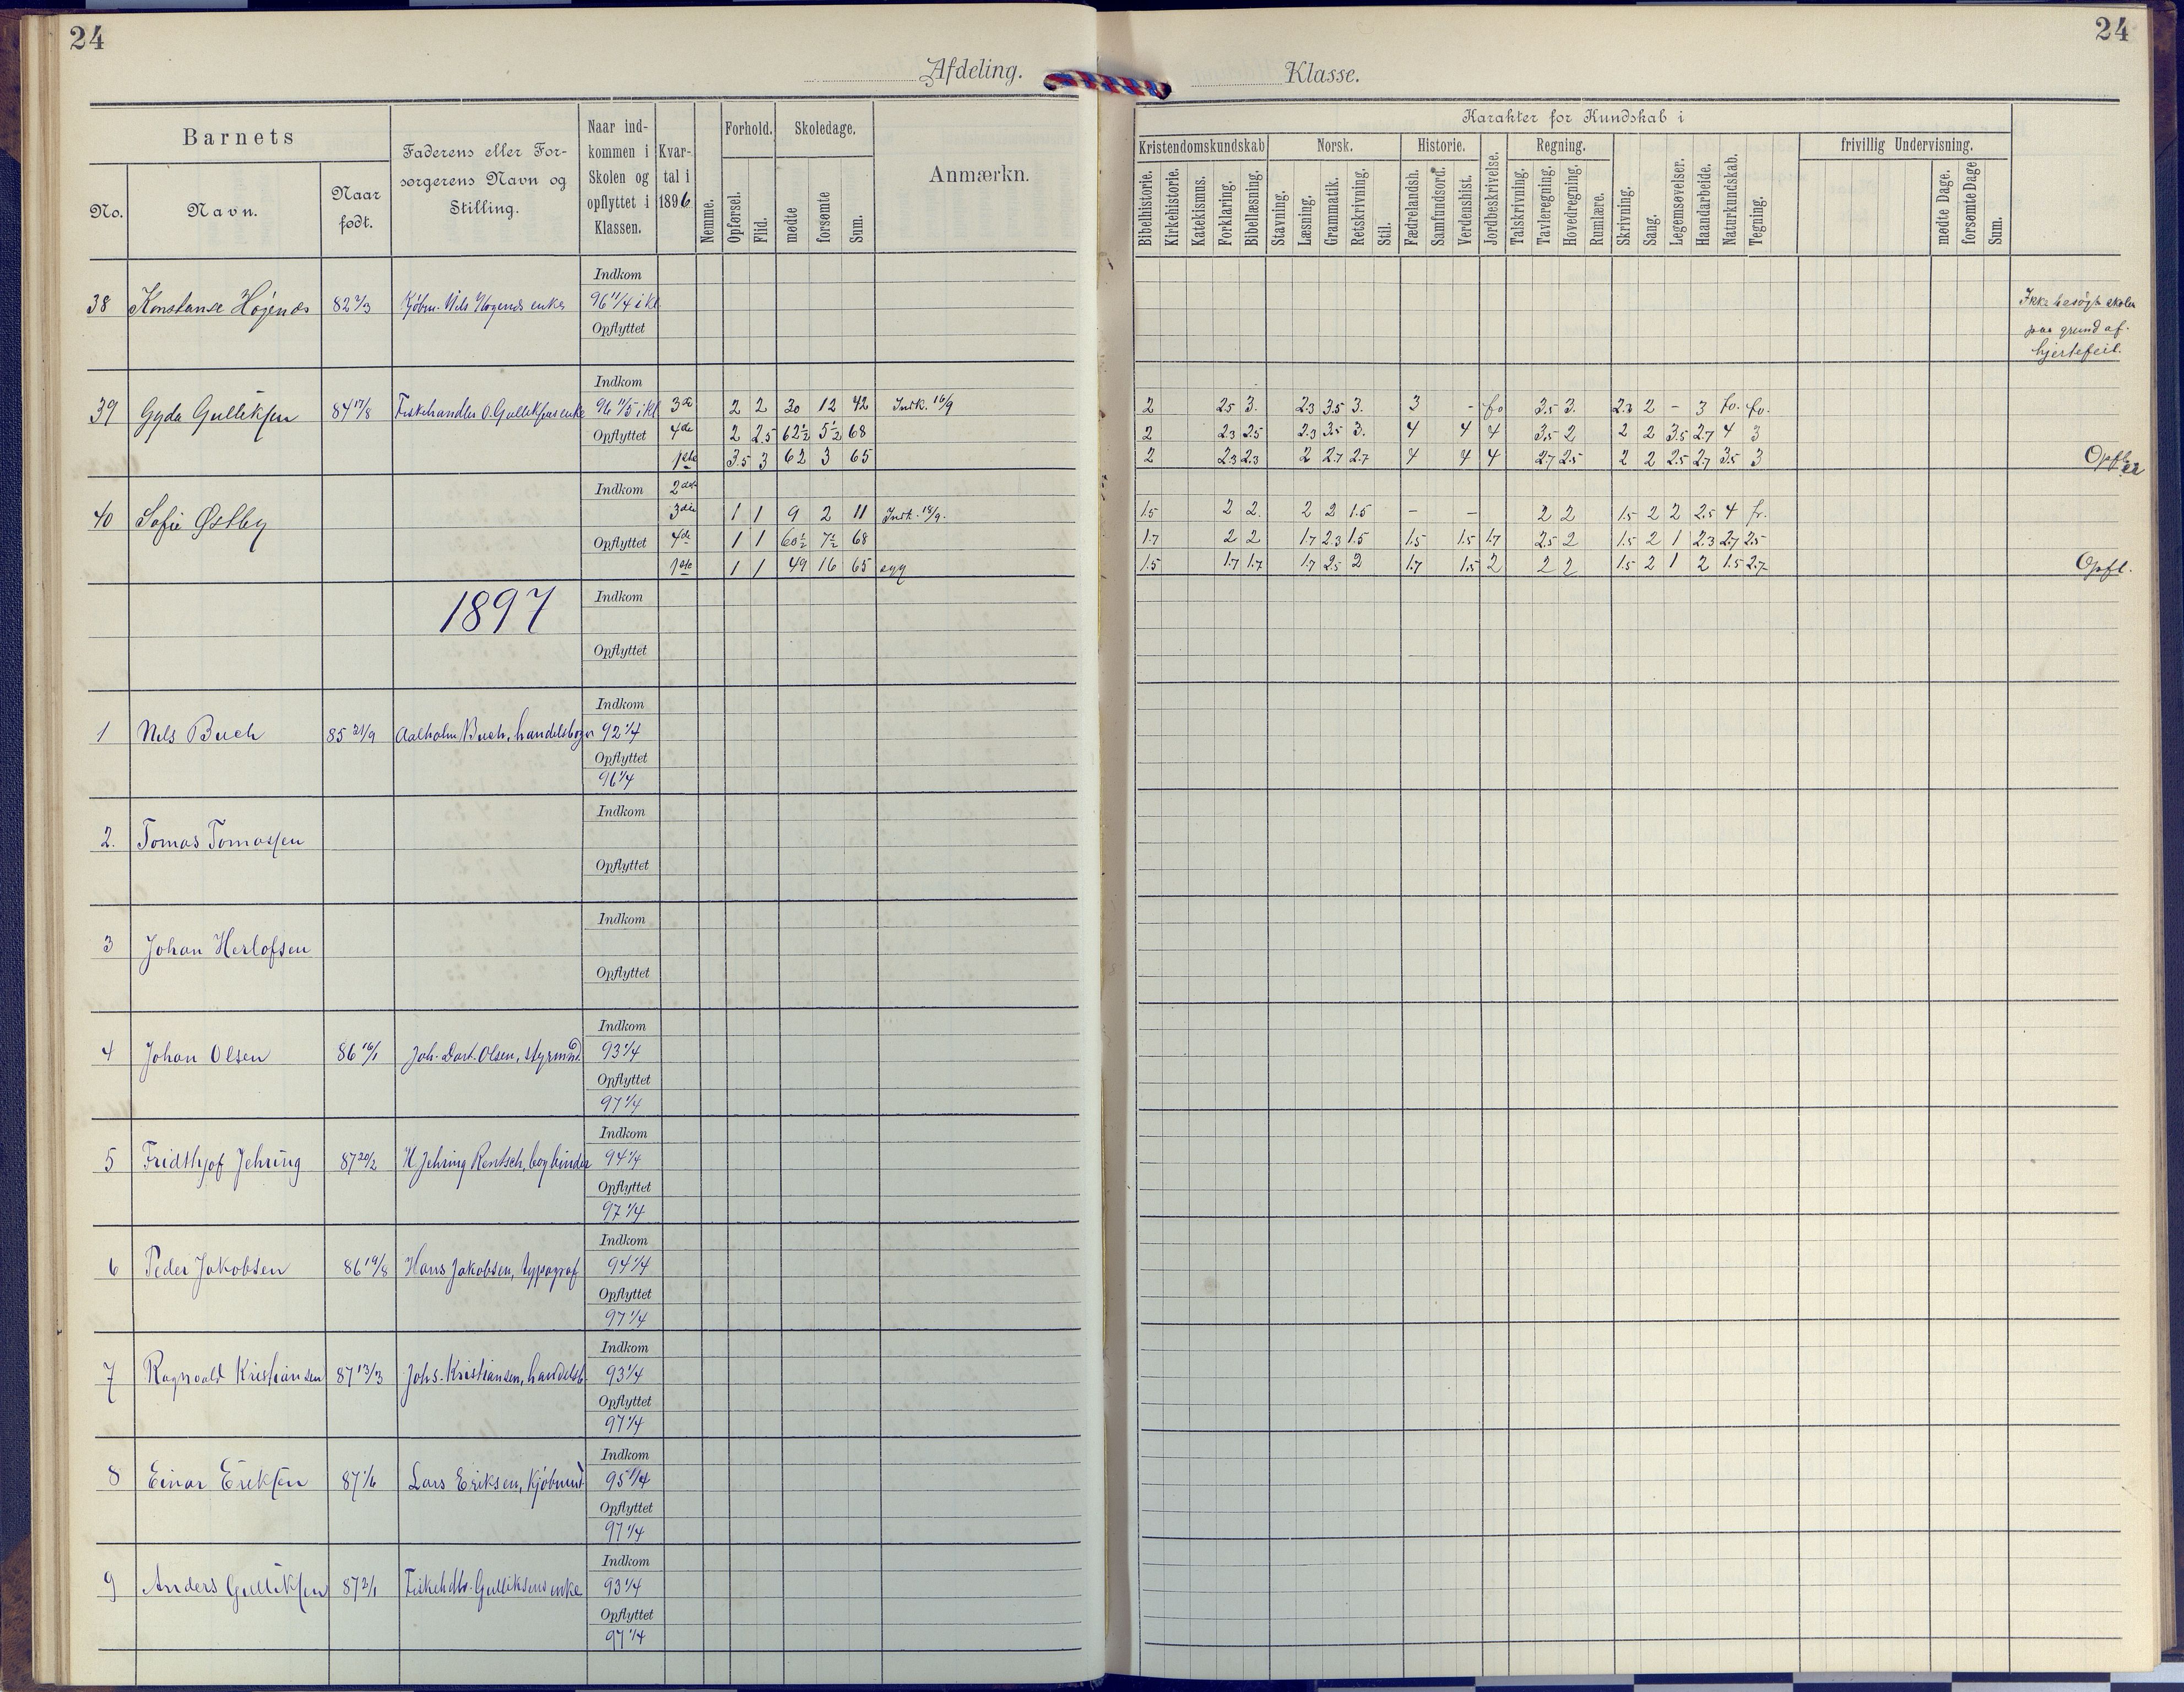 24
24
Afdeling.
Klasse.
Barnets
No.
Navn.
Naar født.
Faderens eller For-
sørgerens Navn og
Stilling.
Naar ind-
kommen i
Skolen og
opflyttet i
Klassen.
Kvar-
tal i
1896
Nemme.
Forhold.
Opførsel.
Flid.
Skoledage.
mødte
forsømte
Sum.
Anmærkn.
Karakter for Kundskab i
Kristendomskundskab
Bibelhistorie.
Kirkehistorie.
Katekismus.
Forklaring.
Bibellæsning.
Norsk.
Stavning.
Læsning.
Grammatik.
Retskrivning.
Stil.
Historie.
Fædrelandsh.
Samfundsord.
Verdenshist.
Jordbeskrivelse.
Regning.
Talskrivning.
Tavleregning.
Hovedregning.
Rumlære.
Skrivning.
Sang.
Legemsøvelser.
Haandarbeide.
Naturkundskab.
Tegning.
frivillig Undervisning.
mødte Dage.
forsømte Dage
Sum.
Indkom
38 Konstanse Høgenæs 82 2/3 Kjøbm. Nils Høgenæs enke 96 11/4 i kl
Opflyttet
Ikke besøgt skolen
paa grund af
hjertefeil.
Indkom
39 Gyda Gulliksen 84 17/8 Fiskehandler O. Gulliksens enke 96 11/5 i kl 3die 2 2 30 12 42 Indk. 16/9 2 2.5 3. 2.3 3.5 3. 3 - fo 3.5 3. 2.3 2 - 3 fo. fo.
Opflyttet 4de 2 2.5 62½ 5½ 68 2 2.3 2.5 2.3 3.5 3. 4 4 4 3.5 2 2 2 3.5 2.7 4 3
1ste 3.5 3 62 3 65 2 2.3 2.3 2 2.7 2.7 4 4 4 2.7 2.5 2 2 2.5 2.7 3.5 3 Opfl.
Indkom 2det
40 Sofie Østby 3die 1 1 9 2 11 Indk. 18/9. 1.5 2 2. 2 2 1.5 - - 2 2 1.5 2 2 2.5 4 fr.
Opflyttet 4de 1 1 60½ 7½ 68 1.7 2 2 1.7 2.3 1.5 1.5 1.5 1.7 2.5 2 1.5 2 1 2.3 2.7 2.5
1ste 1 1 49 16 65 syg 1.5 1.7 1.7 1.7 2.5 2 1.7 1.5 2 2 2 1.5 2 1 2 1.5 2.7 Opfl.
1897
Indkom
Opflyttet
Indkom
1 Nils Buch 85 21/9 Aalholm Buch, handelsborger 92 1/4
Opflyttet
96 1/4
Indkom
2. Tomas Tomassen
Opflyttet
Indkom
3 Johan Herlofsen
Opflyttet
Indkom
4 Johan Olsen 86 16/1 Joh. Olsen, styrmand 93 1/4
Opflyttet
97 1/4
Indkom
5 Fridthjof Jehring 87 20/2 H Jehring Rentsch, bogbinder 94 1/4
Opflyttet
97 1/4
Indkom
6 Peder Jakobsen 86 19/8 Hans Jakobsen, typograf 94 1/4
Opflyttet
97 1/4
Indkom
7 Ragnvald Kristiansen 87 13/3 Johs. Kristiansen, handelsb. 93 1/4
Opflyttet
97 1/4
Indkom
8 Einar Eriksen 87 1/6 Lars Eriksen, kjøbmd. 95 1/4
Opflyttet
97 1/4
Indkom
9 Anders Gulliksen 87 2/1 Fiskehdlr. Gulliksens enke 93 1/4
Opflyttet
97 1/4